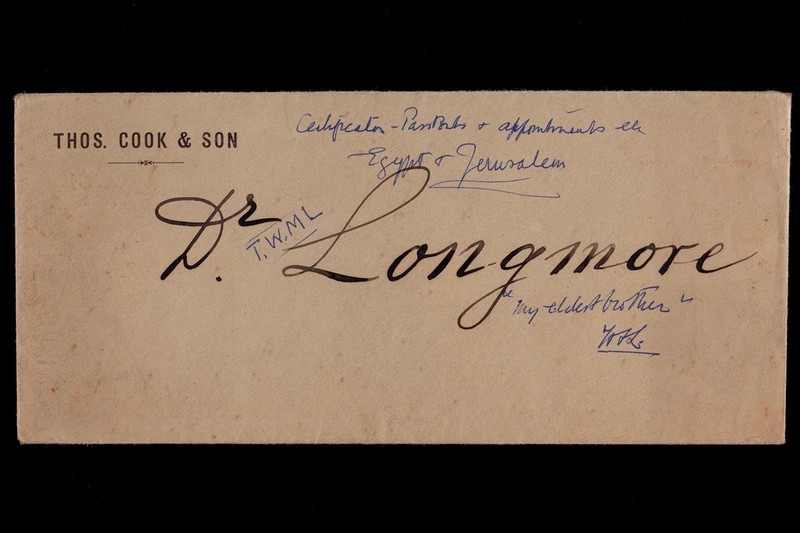 THOS. COOK & SON
Certificates - Passports & appointments etc
Egypt & Jerusalem
Dr. Longmore
T.W.M L
"my eldest brother"